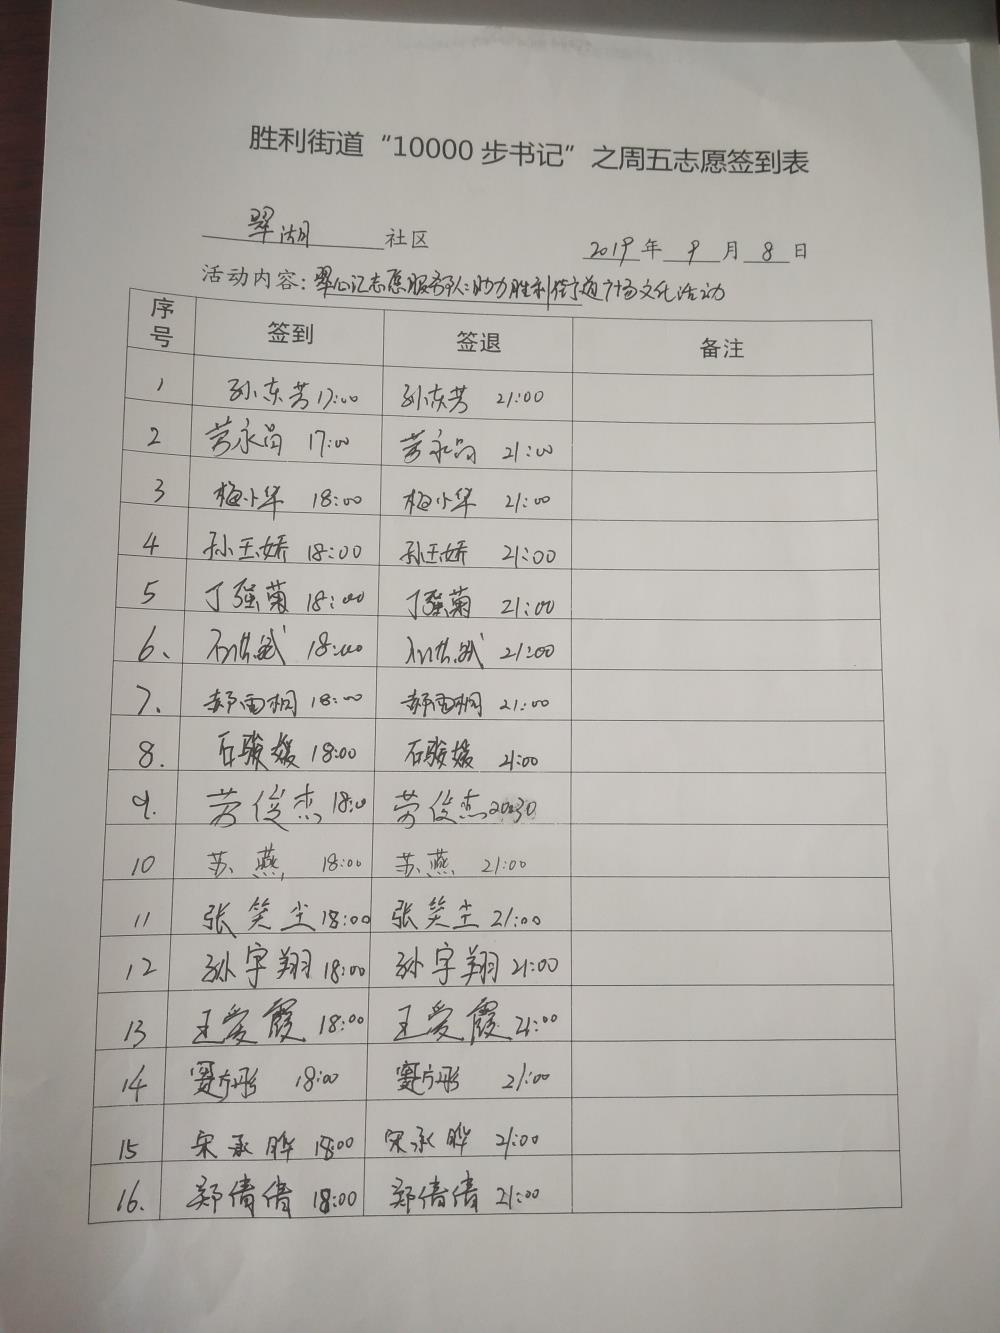 胜利街道“10000步书记”之周五志愿签到表
翠湖 社区 2019年 9 月 8 日
活动内容：翠心汇志愿服务队：助力胜利街道广场文化活动
序号 签到 签退 备注
1 孙东芳 17:00 孙东芳 21:00
2 劳永昌 17:00 劳永昌 21:00
3 梅小华 18:00 梅小华 21:00
4 孙玉娇 18:00 孙玉娇 21:00
5 丁强菊 18:00 丁强菊 21:00
6. 18:00 21:00
7. 郝雨桐 18:00 郝雨桐 21:00
8. 石骏媛 18:00 石骏媛 21:00
9. 劳俊杰 18:00 劳俊杰 20:30
10 苏燕 18:00 苏燕 21:00
11 张笑尘 18:00 张笑尘 21:00
12 孙宇翔 18:00 孙宇翔 21:00
13 王爱霞 18:00 王爱霞 21:00
14 18:00 21:00
15 宋承晔 18:00 宋承晔 21:00
16. 郑倩倩 18:00 郑倩倩 21:00